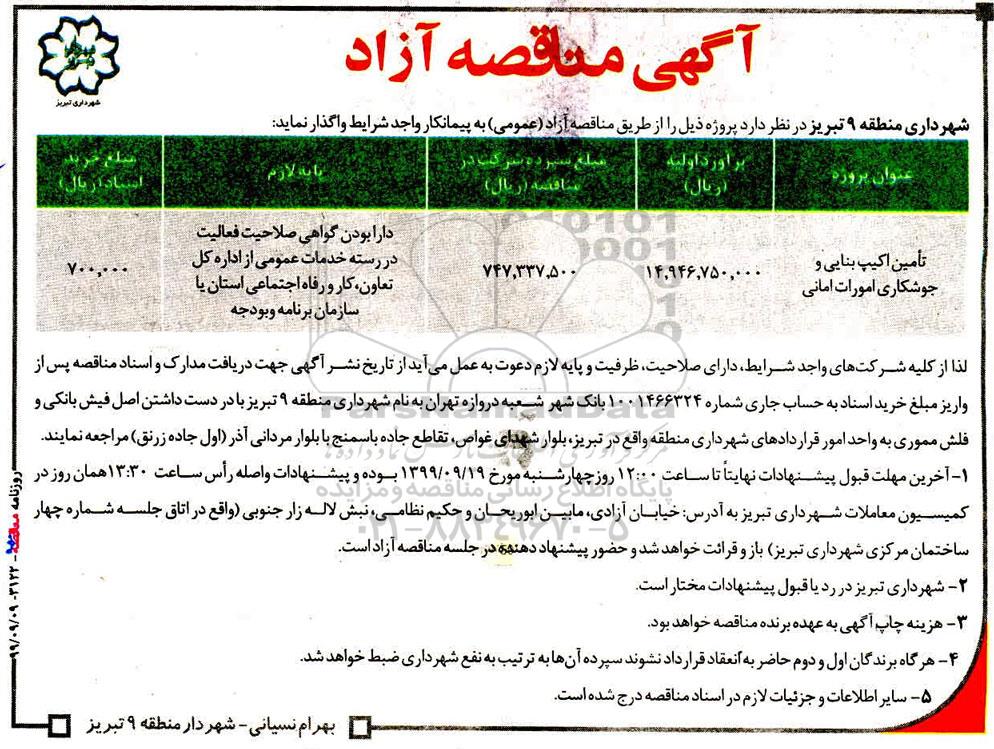 آگهی مناقصه آزاد
شهرداری تبریز
شهرداری منطقه ۹ تبریز در نظر دارد پروژه ذیل را از طریق مناقصه آزاد (عمومی) به پیمانکار واجد شرایط واگذار نماید:
عنوان پروژه
برآورد اولیه (ریال)
مبلغ سپرده شرکت در مناقصه (ریال)
پایه لازم
مبلغ خرید اسناد (ریال)
تأمین اکیپ بنایی و
جوشکاری امورات امانی
۱۴,۹۴۶,۷۵۰,۰۰۰
۷۴۷,۳۳۷,۵۰۰
دارا بودن گواهی صلاحیت فعالیت
در رسته خدمات عمومی از اداره کل
تعاون، کار و رفاه اجتماعی استان یا
سازمان برنامه وبودجه
۷۰۰,۰۰۰
لذا از کلیه شرکت‌های واجد شرایط، دارای صلاحیت، ظرفیت و پایه لازم دعوت به عمل می‌آید از تاریخ نشر آگهی جهت دریافت مدارک و اسناد مناقصه پس از
واریز مبلغ خرید اسناد به حساب جاری شماره ۱۰۰۱۴۶۶۳۲۴ بانک شهر شعبه دروازه تهران به نام شهرداری منطقه ۹ تبریز با در دست داشتن اصل فیش بانکی و
فلش مموری به واحد امور قراردادهای شهرداری منطقه واقع در تبریز، بلوار شهدای غواص، تقاطع جاده باسمنج با بلوار مردانی آذر (اول جاده زرنق) مراجعه نمایند.
۱- آخرین مهلت قبول پیشنهادات نهایتاً تا ساعت ۱۲:۰۰ روز چهارشنبه مورخ ۱۳۹۹/۰۹/۱۹ بوده و پیشنهادات واصله رأس ساعت ۱۳:۳۰ همان روز در
کمیسیون معاملات شهرداری تبریز به آدرس: خیابان آزادی، مابین ابوریحان و حکیم نظامی، نبش لاله زار جنوبی (واقع در اتاق جلسه شماره چهار
ساختمان مرکزی شهرداری تبریز) باز و قرائت خواهد شد و حضور پیشنهاد دهنده در جلسه مناقصه آزاد است.
۲- شهرداری تبریز در رد یا قبول پیشنهادات مختار است.
۳- هزینه چاپ آگهی به عهده برنده مناقصه خواهد بود.
۴- هرگاه برندگان اول و دوم حاضر به انعقاد قرارداد نشوند سپرده آن‌ها به ترتیب به نفع شهرداری ضبط خواهد شد.
۵- سایر اطلاعات و جزئیات لازم در اسناد مناقصه درج شده است.
بهرام نسیانی- شهردار منطقه ۹ تبریز
روزنامه مناقصه - ۳۱۲۲ - ۹۹/۰۹/۰۹
ParsNamadData
پایگاه اطلاع رسانی مناقصه و مزایده
۰۲۱-۸۸۳۴۹۶۷۰-۵